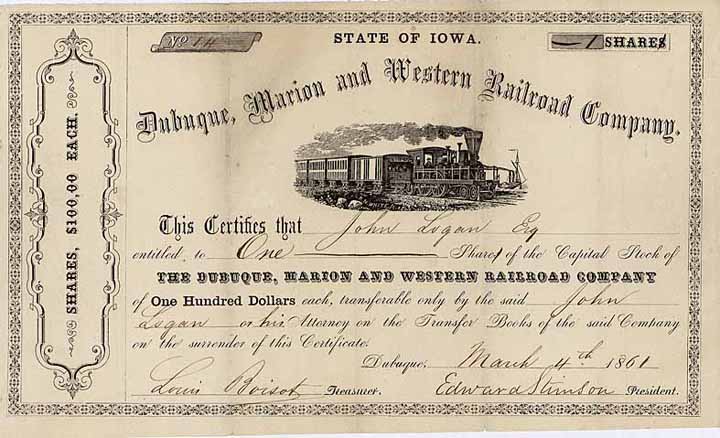 No 14
STATE OF IOWA.
1 SHARES
Dubuque, Marion and Western Railroad Company.
SHARES, $100,00 EACH.
This Certifies that John Logan Esq
entitled to One Shares of the Capital Stock of
THE DUBUQUE, MARION AND WESTERN RAILROAD COMPANY
of One Hundred Dollars each, transferable only by the said John
Logan or his Attorney on the Transfer Books of the said Company
on the surrender of this Certificate.
Dubuque, March 4th 1861
Louis Boisot Treasurer. Edward Stimson President.